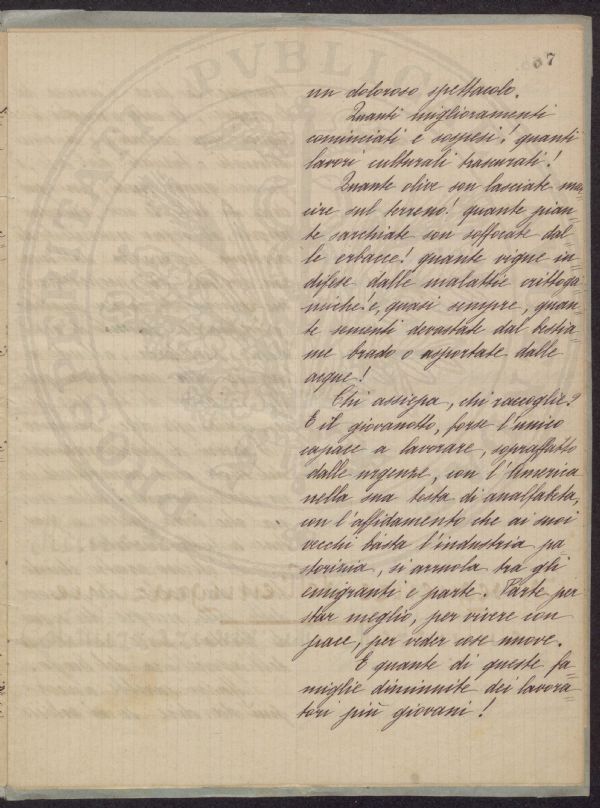 67
un doloroso spettacolo.
Quanti miglioramenti
cominciati e sospesi! quanti
lavori culturali trascurati!
Quante olive son lasciate mar=
cire sul terreno! quante pian=
te sarchiate son soffocate dal=
le erbacce! quante vigne in=
difese dalle malattie crittoga=
miche! e, quasi sempre, quan=
te sementi devastate dal bestia=
me brado o asportate dalle
acque!
Chi assiepa, chi raccoglie?
E il giovanotto, forse l'unico
capace a lavorare, sopraffatto
dalle urgenze, con l'America
nella sua testa di analfabeta,
con l'affidamento che ai suoi
vecchi basta l'industria pa=
storizia, si arruola tra gli
emigranti e parte. Parte per
star meglio, per vivere con
pace, per veder cose nuove.
E quante di queste fa=
miglie diminuite dei lavora=
tori più giovani!